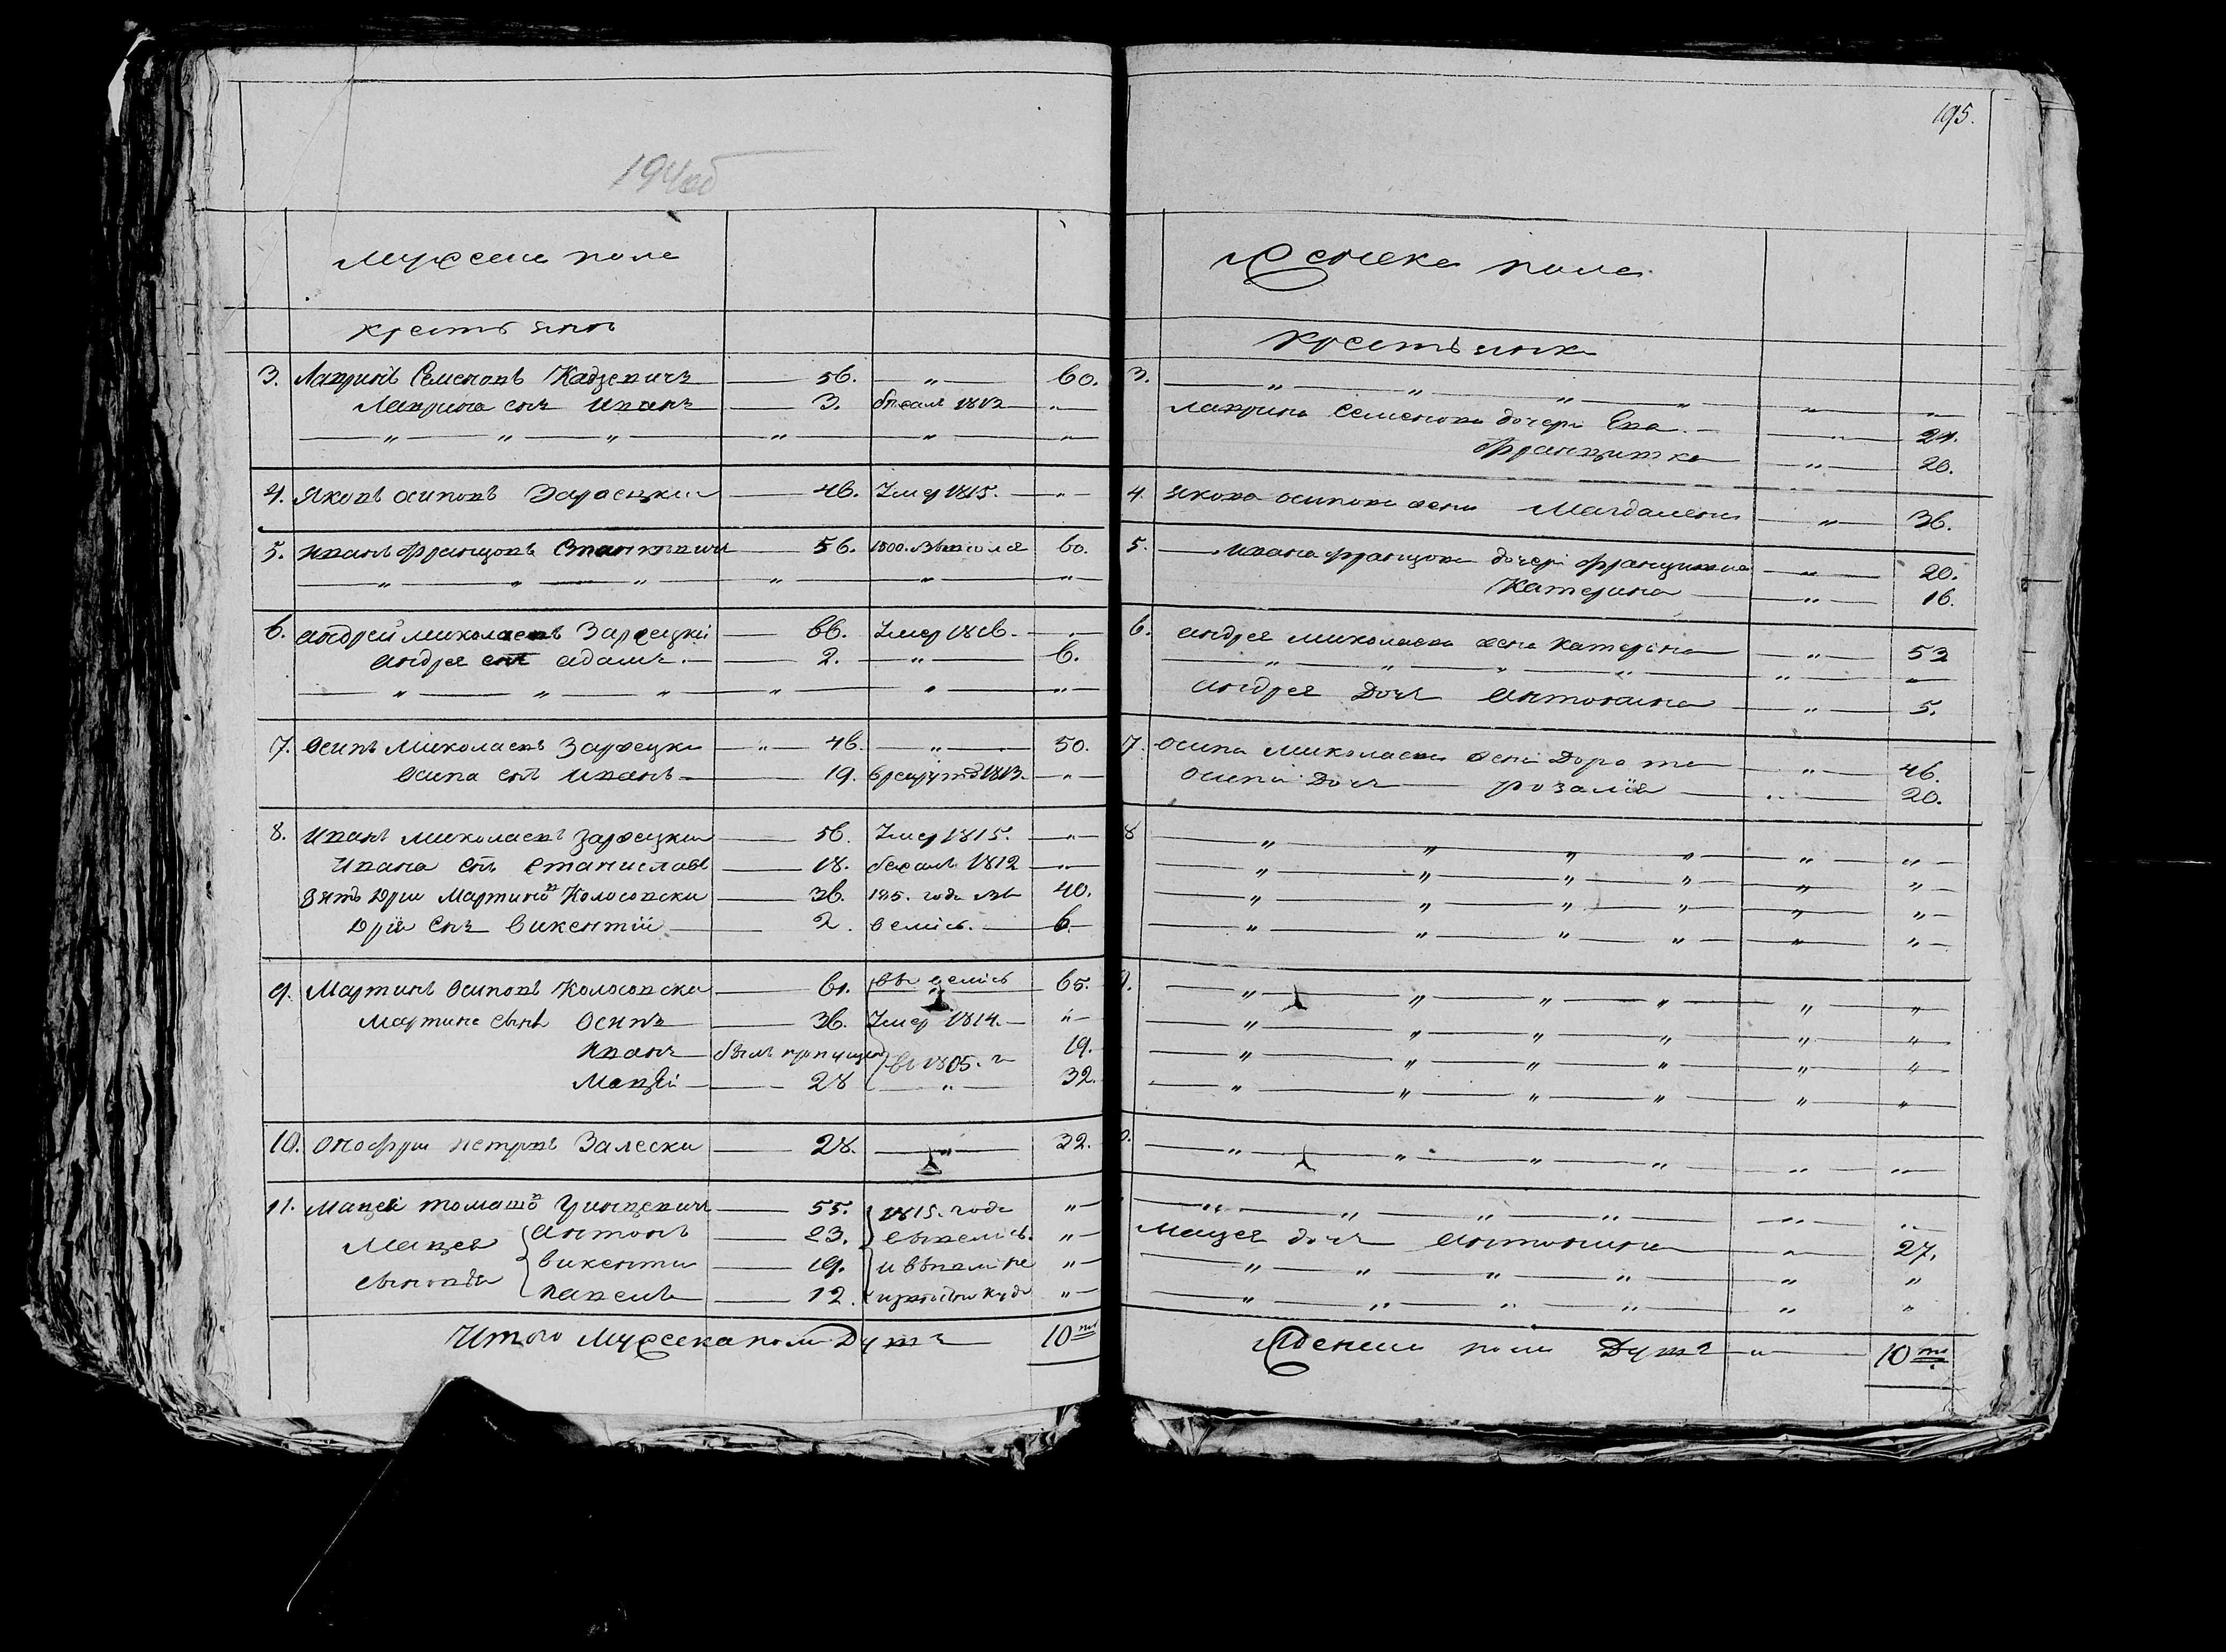 194об
мужеска пола
крестьяны
3. Лавринъ Семеновъ Кадзевичъ — 56. — „ — 60.
Лаврина снъ Иванъ — 3. бежал 1812 — „ —
— „ — „ — „ — „ — „ — „ —
4. Яковъ Осиповъ Зарецки — 46. Умер 1815. — „ —
5. Иванъ Францовъ Станкевичъ — 56. 1800. 60.
— „ — „ — „ — „ — „ — „ —
6. Андрей Миколаевъ Зарецкі — 66. Умер 1816. — „ —
Андрея снъ Адамъ. — 2. — „ — 6.
— „ — „ — „ — „ — „ — „ —
7. Осипъ Миколаевъ Зарецки — „ — 46. — „ — 50.
Осипа снъ Иванъ — 19. в рекруты 1813. — „ —
8. Иванъ Миколаевъ Зарецки — 56. Умер 1815. — „ —
Ивана снъ Станиславъ — 18. бежалъ 1812 — „ —
Зять Юри Мартиновъ Колосовски — 36. 185. года 40.
Юрія снъ Викентій — 2. 6.
9. Мартинъ Осиповъ Колосовски — 61. 65.
Мартина сынъ Осипъ — 36. Умер 1814. — „ —
Иванъ былъ пропущенъ въ 1805. г 19.
Мацѣй — 28 — „ — 32.
10. Онофри Петровъ Залески — 28. — „ — 32.
11. Мацей Томашовъ — 55. 1815. года „ —
Антонъ — 23. „ —
Мацея Викенти — 19. „ —
сыновья Павелъ — 12. „ —
Итого Мужеска пола Душъ — 10ть
195.
Женска пола
Крестьянки
3. — „ — „ — „ — „ — „ — „ —
Лаврина Семенова дочери Ева. — „ — 21.
Францишка — „ — 20.
4. Якова Осипова жена Магдалена — „ — 36.
5. — Ивана Францова дочери Францишка — „ — 20.
Катерина — „ — 16.
6. Андрея Миколаева жена Катерина — „ — 53
— „ — „ — „ — „ — „ — „ —
Андрея Дочь Антонина — „ — 5.
7. Осипа Миколаева жена Дорота — „ — 46.
Осипа Дочь — Розалія — „ — 20.
8 — „ — „ — „ — „ — „ — „ —
— „ — „ — „ — „ — „ — „ —
— „ — „ — „ — „ — „ — „ —
— „ — „ — „ — „ — „ — „ —
9. — „ — „ — „ — „ — „ — „
— „ — „ — „ — „ — „ — „
— „ — „ — „ — „ — „ — „
— „ — „ — „ — „ — „ — „
0. — „ — „ — „ — „ — „ — „ —
— „ — „ — „ — „ — „ — „ —
Мацея дочь Антонина — „ — 27.
— „ — „ — „ — „ — „ — „
— „ — „ — „ — „ — „ — „
Женска пола Душъ — „ — 10ть